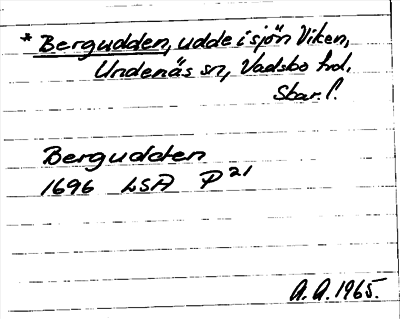 * Bergudden, udde i sjön Viken,
Undenäs sn, Vadsbo hd.
Skar. l.
Bergudden
1696 LSA P 21
A. A. 1965.